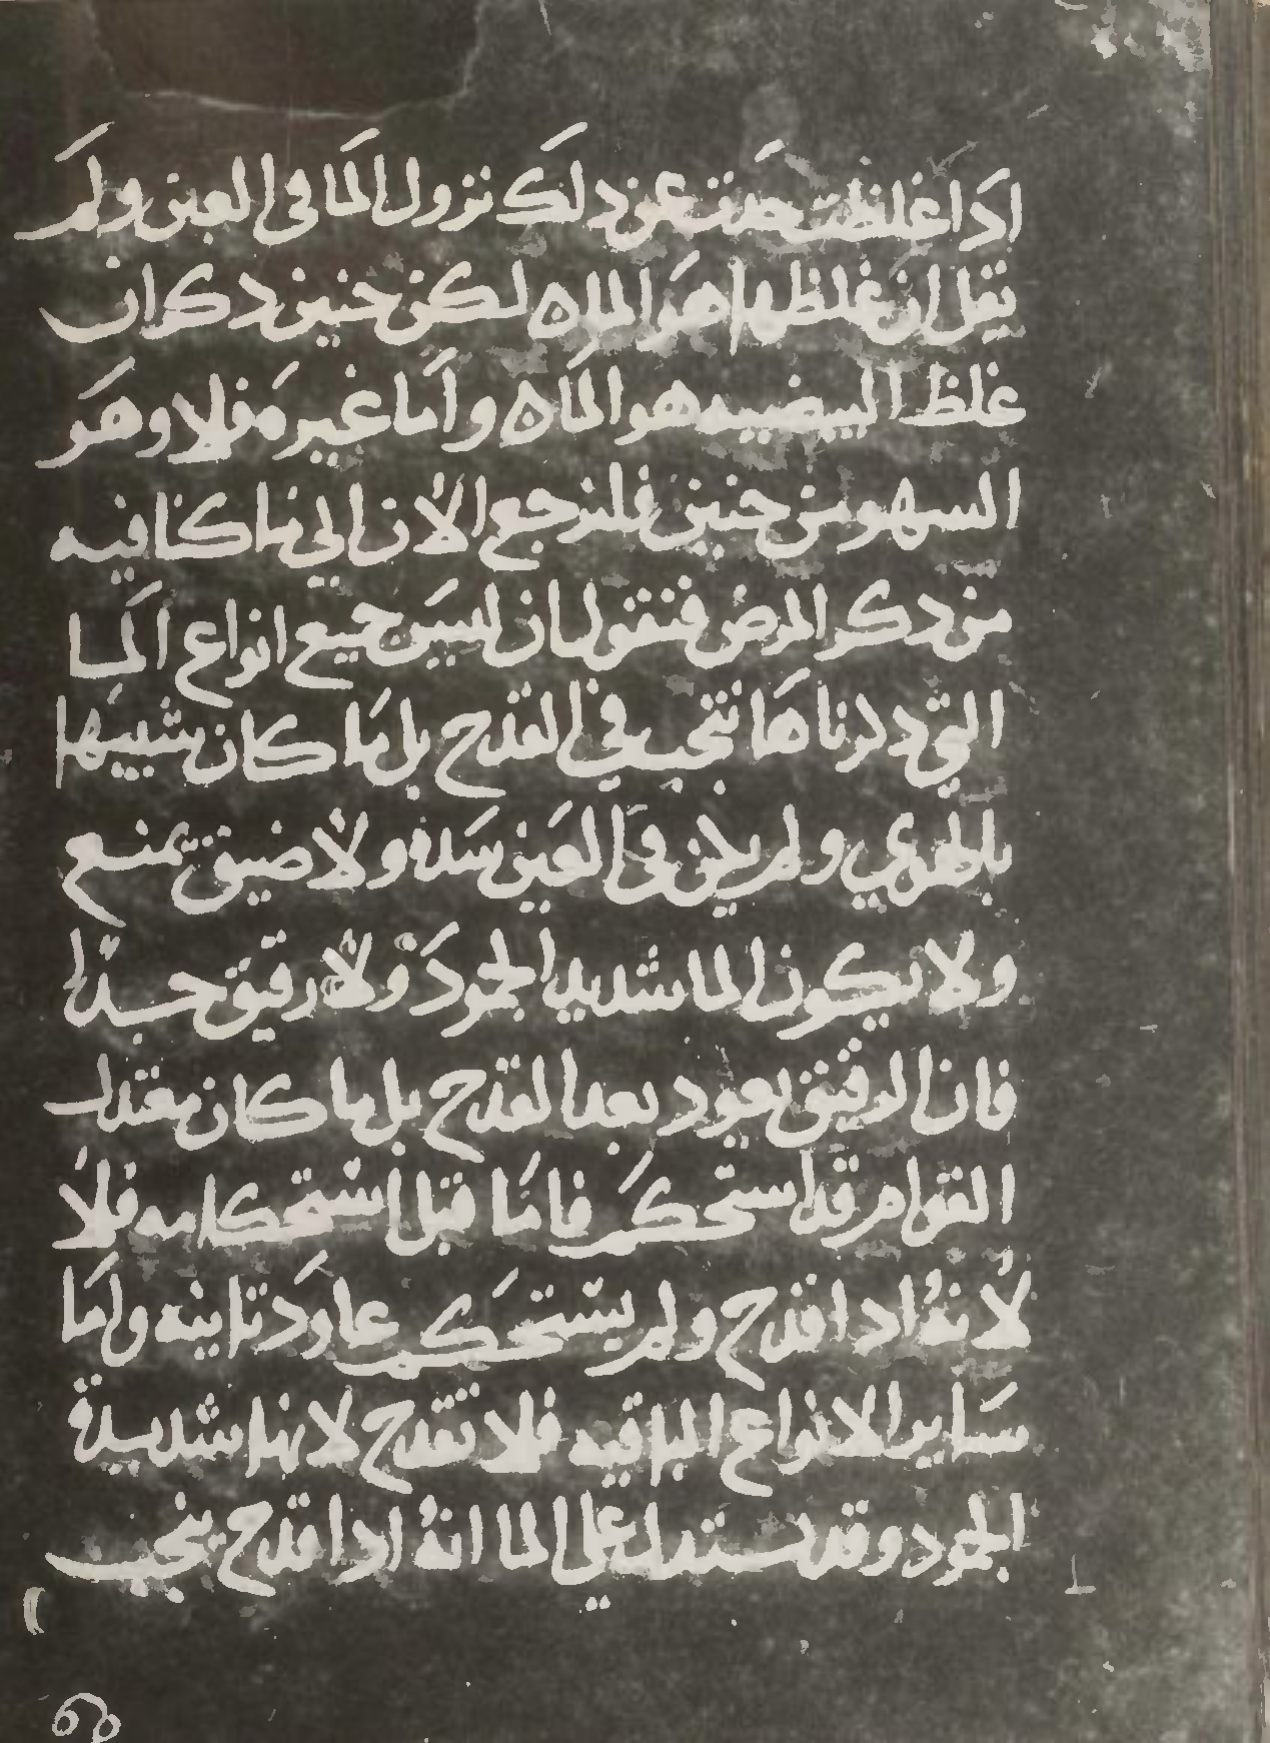 ادا غلظت حدث عن دلك نزول الما فى العين ولم
يقل ان غلظها هو الماه لكن حنين دكر ان
غلظ البيضيه هو الماه واما غيره فلا وهو
السهو من حنين فلنرجع الان الي ما كنا فيه
من دكر المرض فنقول ان ليس جميع انواع الما
التي دكرناها تنجب في القدح بل ما كان شبيها
بالهوي ولم يكن فى العين سده ولا ضيق يمنع
ولا يكون الما شديد الجمود ولا رقيق جدا
فان الرقيق يعود بعد القدح بل ما كان معتدل
القوام قد استحكم فاما قبل استحكامه فلا
لانه ادا قدح ولم يستحكم عاود ثانيه واما
ساير الانواع الباقيه فلا تقدح لانها شديدة
الجمود وقد نستدل علي الما انه ادا قدح ينجب